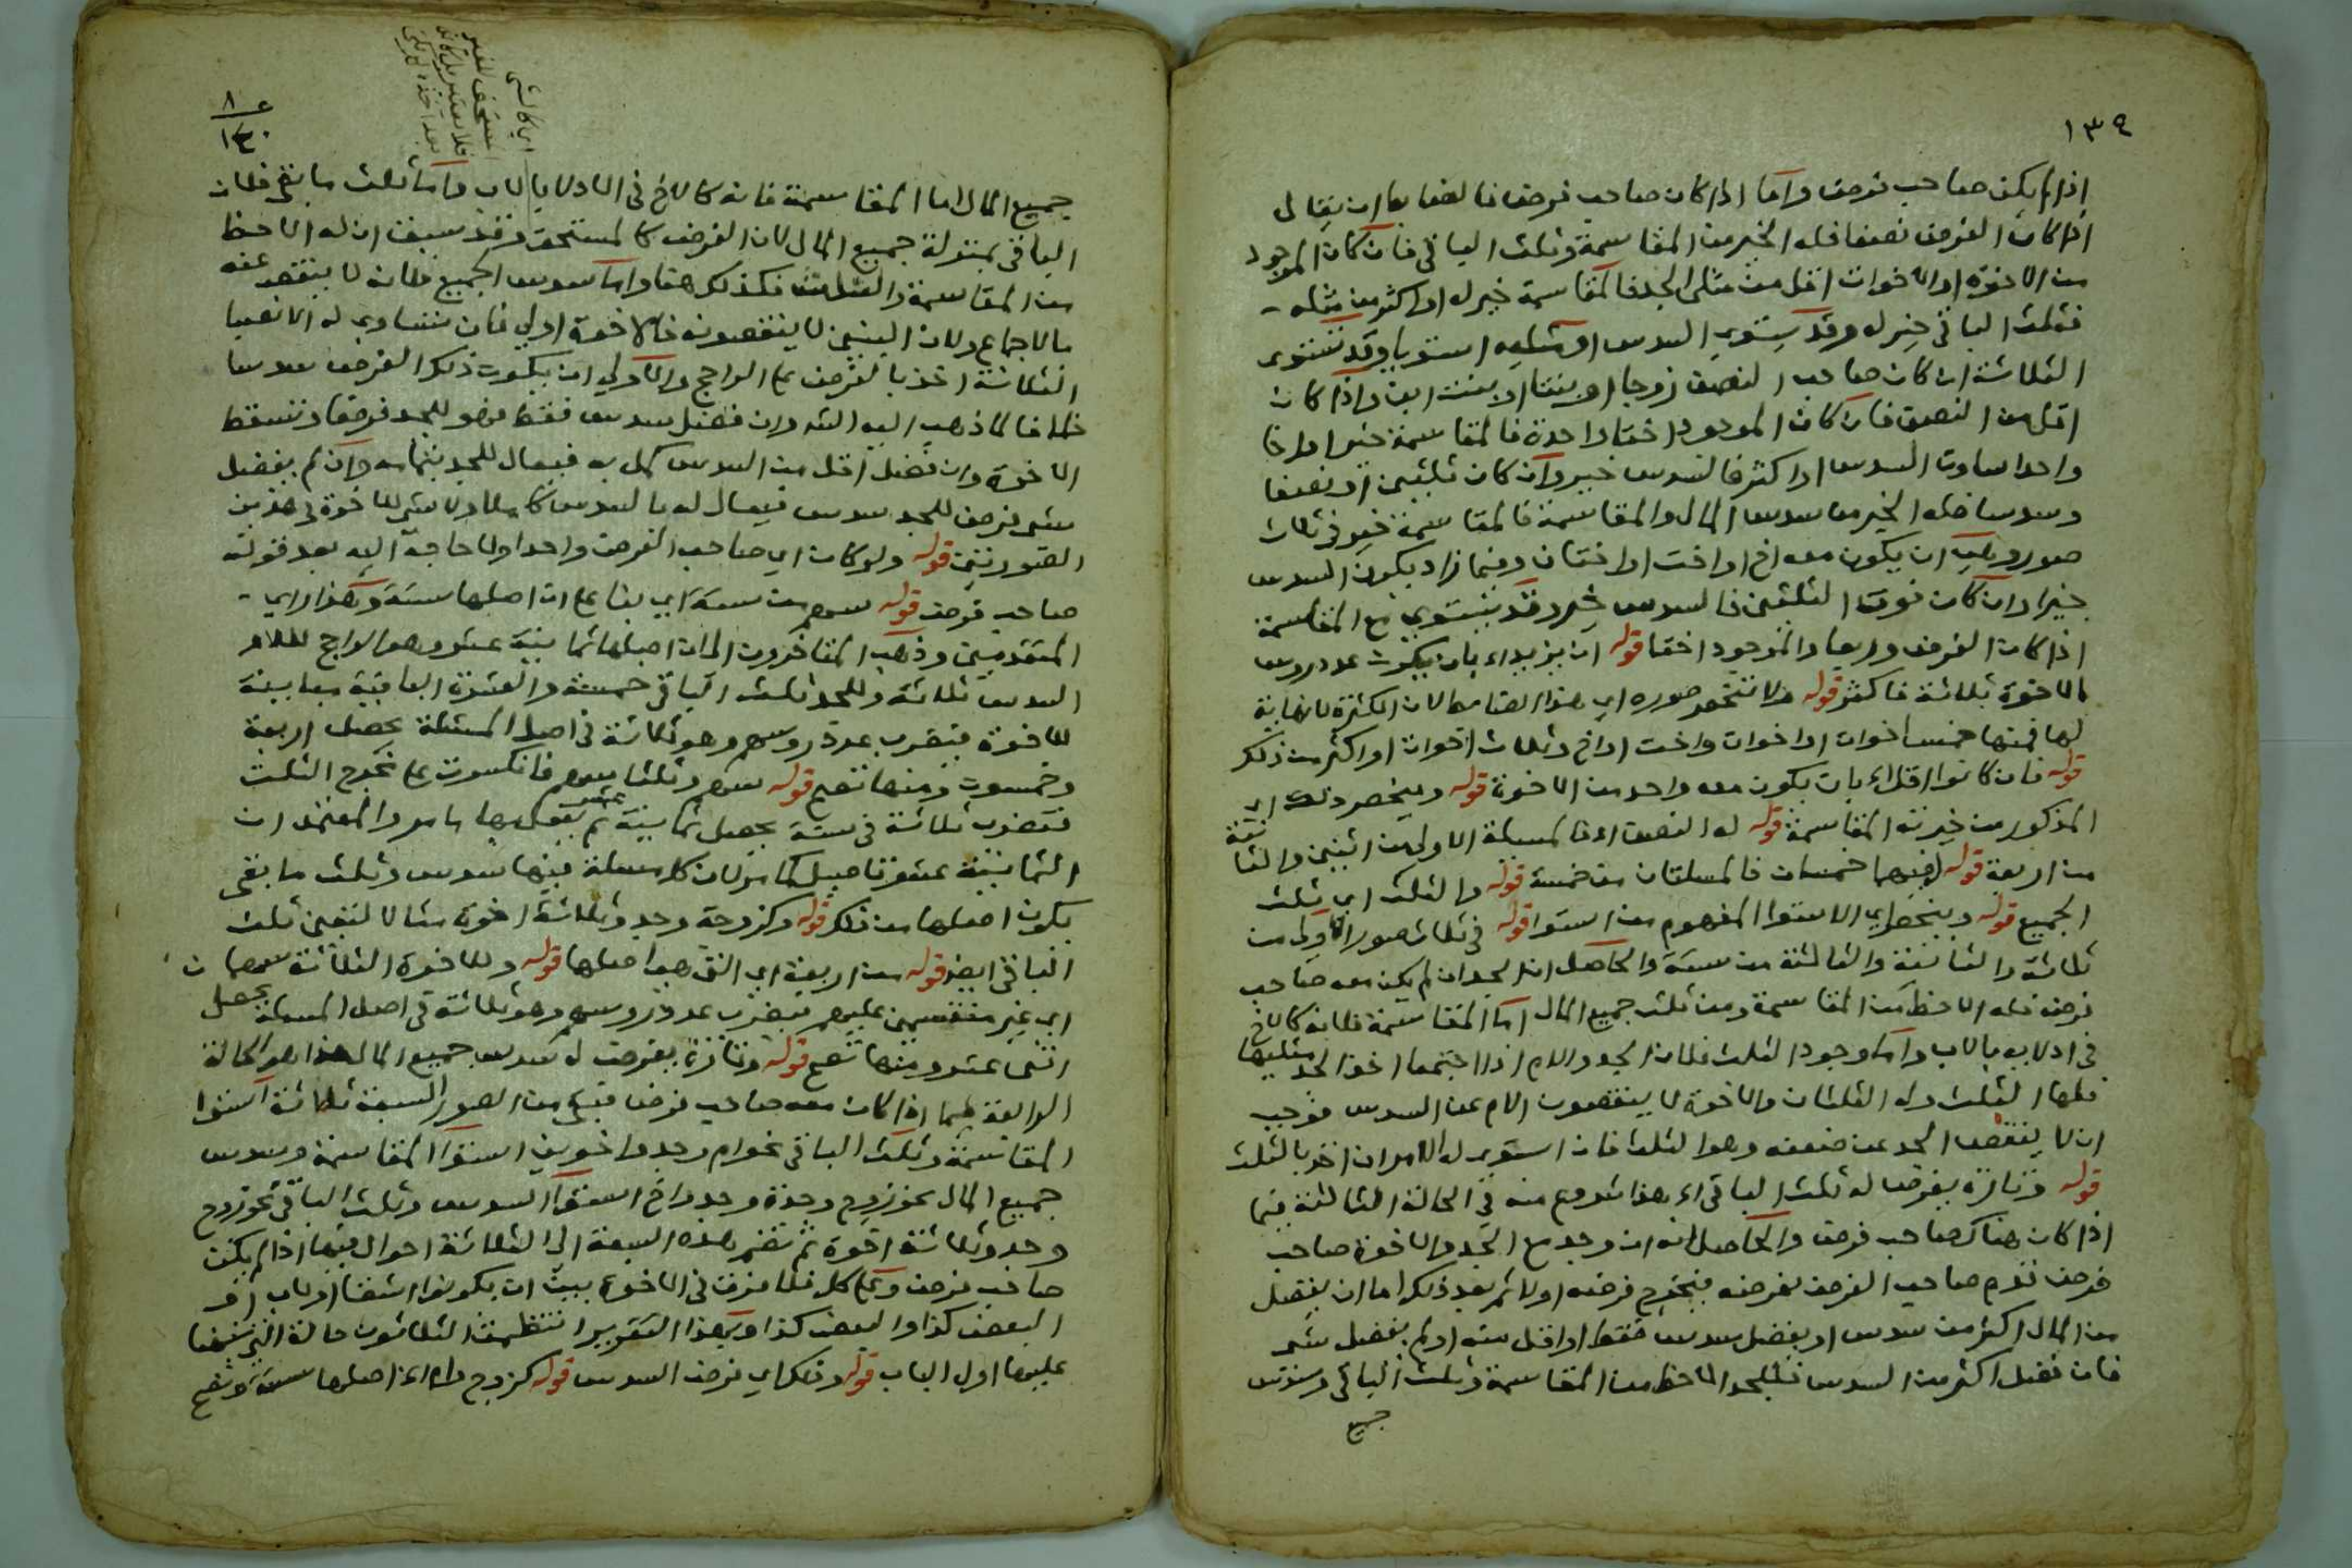 ١٣٩
اذا لم يكن صاحب فرض واما اذا كان صاحب فرض فالضابط ان يقال
اذا كان الفرض نصفا فله الخير من المقاسمة وثلث الباقي فان كان الموجود
من الاخوة او الاخوات اقل من مثلي الجد فالمقاسمة خير له او اكثر من مثله
فثلث الباقي خير له وقد يستوى السدس او مثليه استويا وقد تستوى
الثلاثة ان كان صاحب النصف زوجا او بنتا او بنت ابن واذا كان
اقل من النصف فان كان الموجود اختا واحدة فالمقاسمة خير او اخا
واحدا ساوت السدس او اكثر فالسدس خير وان كان ثلثين او نصفا
وسدسا فله الخير من سدس المال والمقاسمة فالمقاسمة خير في ثلاث
صور وهي ان يكون معه اخ او اخت او اختان وفيما زاد يكون السدس
خيرا وان كان فوق الثلثين فالسدس خير وقد يستوي مع المقاسمة
اذا كان الفرض وربعا والموجود اختا قوله ان يزيد اي بان يكون عدد روس
الاخوة ثلاثة فاكثر قوله ولا تنحصر صوره اي هذا الضابط لان الكثرة لا نهاية
لها فمنها خمس اخوات او اخوات واخت او اخ وثلاث اخوات او اكثر من ذلك
قوله فان كانوا اقل اي بان يكون معه واحد من الاخوة قوله وينحصر ذلك اي
المذكور من خيرية المقاسمة قوله له النصف اي فالمسئلة الاولى من اثنين والثانية
من اربعة قوله فيهما خمسان فالمسئلتان من خمسة قوله والثلث اي ثلث
الجميع قوله وينحصر اي الاستوا المفهوم من استوا قوله في ثلاث صور الاولى من
ثلاثة والثانية والثالثة من ستة والحاصل ان الجد ان لم يكن معه صاحب
فرض فله الاحظ من المقاسمة ومن ثلث جميع المال اما المقاسمة فلانه كالاخ
في ادلايه بالاب واما وجود الثلث فلان الجد والام اذا اجتمعا اخذ الجد مثليها
فلها الثلث وله الثلثان والاخوة لا ينقصون الام عن السدس فوجب
ان لا ينقص الجد عن ضعفه وهو الثلث فان استوى له الامران اخذ بالثلث
قوله وتارة يفرض له ثلث الباقي اي هذا شروع منه في الحالة الثالثة فيما
اذا كان هناك صاحب فرض والحاصل انه ان وجد مع الجد والاخوة صاحب
فرض قدم صاحب الفرض بفرضه فيخرج فرضه اولا ثم بعد ذلك اما ان يفضل
من المال اكثر من سدس او يفضل سدس فقط او اقل منه او لم يفضل شي
فان فضل اكثر من السدس فللجد الاحظ من المقاسمة وثلث الباقي وسدس
جميع
٨
١٤٠
اي كالشي
المستحق للغير
جميع المال اما المقاسمة فانه كالاخ في الادلا بالاب واما ثلث ما بقي فلان
الباقي بمنزلة جميع المال لان الفرض كالمستحق وقد سبق ان له الاحظ
من المقاسمة والثلث فكذلك هنا واما سدس الجميع فلانه لا ينقص عنه
بالاجماع ولان البنين لا ينقصونه فالاخوة اولى فان تساوى له الانصبا
الثلاثة اخذ بالفرض على الراجح والاولى ان يكون ذلك الفرض سدسا
خلافا لما ذهب اليه وان فضل سدس فقط فهو للجد فرضا وتسقط
الاخوة وان فضل اقل من السدس كمل به فيعال للجد بتمامه وان لم يفضل
شي فرض للجد سدس فيعال له بالسدس كاملا ولا شي للاخوة في هذين
الصورتين قوله ولو كان اي صاحب الفرض واحدا ولا حاجة اليه بعد قوله
صاحب فرض قوله سهم من ستة اي بنا على ان اصلها ستة وهذا راي
المتقدمين وذهب المتاخرون الى ان اصلها ثمانية عشر وهو الراجح للام
السدس ثلاثة وللجد ثلث الباقي خمسة والعشرة الباقية مباينة
للاخوة فيضرب عدد روسهم وهو ثلاثة في اصل المسئلة يحصل اربعة
وخمسون ومنها تصح قوله سهم وثلثا سهم فانكسرت على مخرج الثلث
فتضرب ثلاثة في ستة يحصل ثمانية عشر ثم يعمل بها ما مر والمعتمد ان
الثمانية عشر تاصيل كما مر لان كل مسئلة فيها سدس وثلث ما بقي
يكون اصلها من ذلك قوله وكزوجة وجد وثلاثة اخوة مثالا لتعين ثلث
الباقي ايضا قوله من اربعة اي التي هي اصلها قوله وللاخوة الثلاثة سهمان
اي غير منقسمين عليهم فيضرب عدد روسهم وهو ثلاثة في اصل المسئلة يحصل
اثني عشر ومنها تصح قوله وتارة يفرض له سدس جميع المال هذا هو الحالة
الرابعة فيما اذا كان معه صاحب فرض فبقي من الصور السبعة ثلاثة استوا
المقاسمة وثلث الباقي نحو ام وجد واخوين استوا المقاسمة وسدس
جميع المال نحو زوج وجدة وجد واخ استوا السدس وثلث الباقي نحو زوج
وجد وثلاثة اخوة ثم تضم هذه السبعة الى الثلاثة احوال فيما اذا لم يكن
صاحب فرض وعلى كل فلا فرق في الاخوة بين ان يكونوا اشقا او لاب او
البعض كذا والبعض كذا وبهذا التقرير انتظمت الثلاثون حالة التي نبهنا
عليها اول الباب قوله وذلك اي فرض السدس قوله كزوج وام اي اصلها ستة وتصح